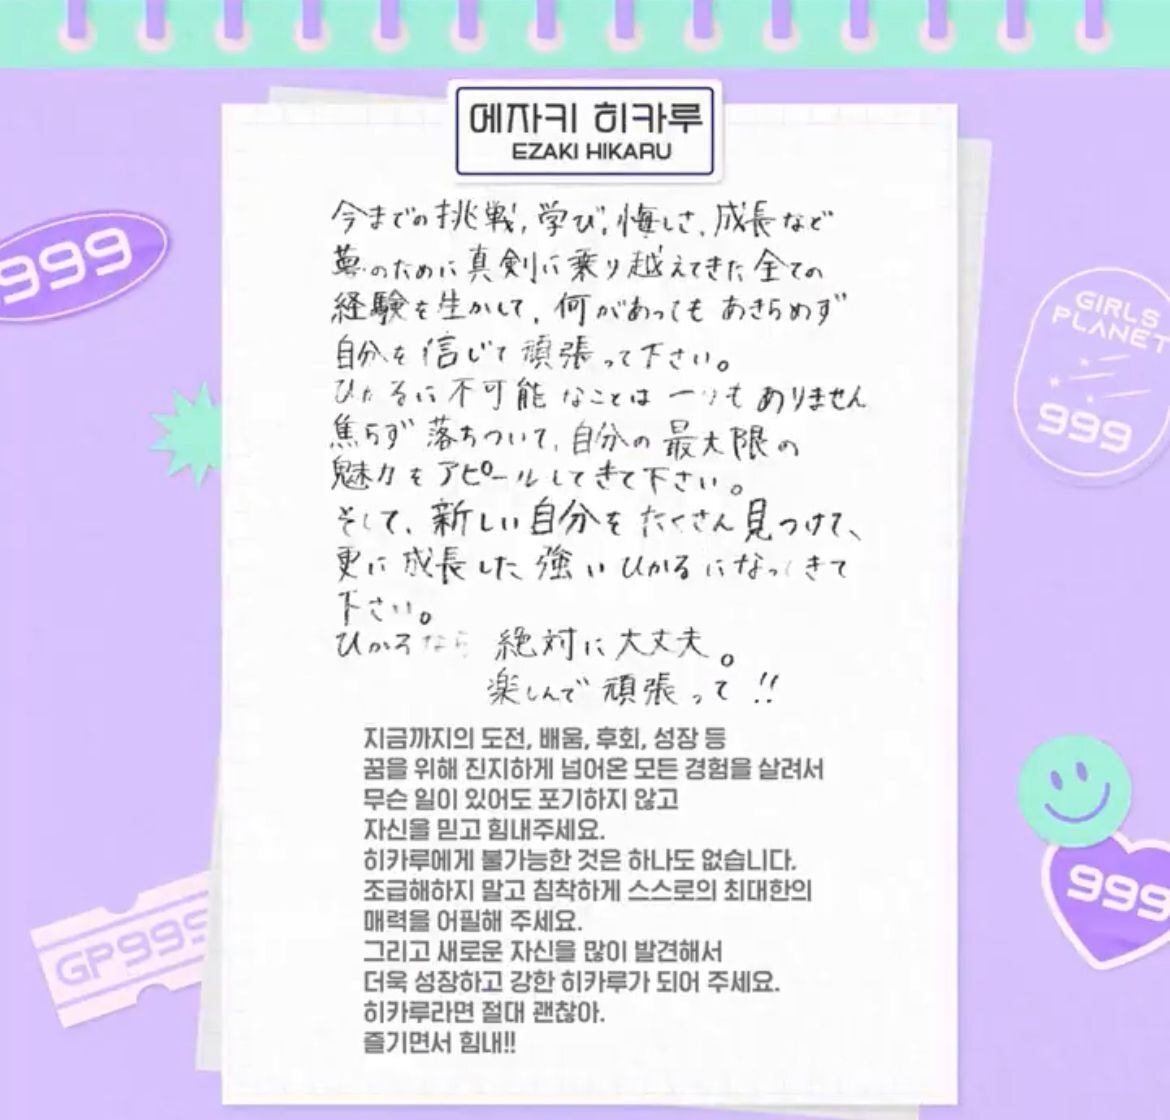 에자키 히카루
EZAKI HIKARU
999
GIRLS
PLANET
999
今までの挑戦,学び,悔しさ,成長など
夢のために真剣に乗り越えてきた全ての
経験を生かして,何があってもあきらめず
自分を信じて頑張って下さい。
ひかるに不可能なことは一つもありません
焦らず落ちついて,自分の最大限の
魅力をアピールしてきて下さい。
そして、新しい自分をたくさん見つけて、
更に成長した強いひかるになってきて
下さい。
ひかるなら 絶対に大丈夫。
楽しんで頑張って!!
지금까지의 도전, 배움, 후회, 성장 등
꿈을 위해 진지하게 넘어온 모든 경험을 살려서
무슨 일이 있어도 포기하지 않고
자신을 믿고 힘내주세요.
히카루에게 불가능한 것은 하나도 없습니다.
조급해하지 말고 침착하게 스스로의 최대한의
매력을 어필해 주세요.
그리고 새로운 자신을 많이 발견해서
더욱 성장하고 강한 히카루가 되어 주세요.
히카루라면 절대 괜찮아.
즐기면서 힘내!!
GP999
999